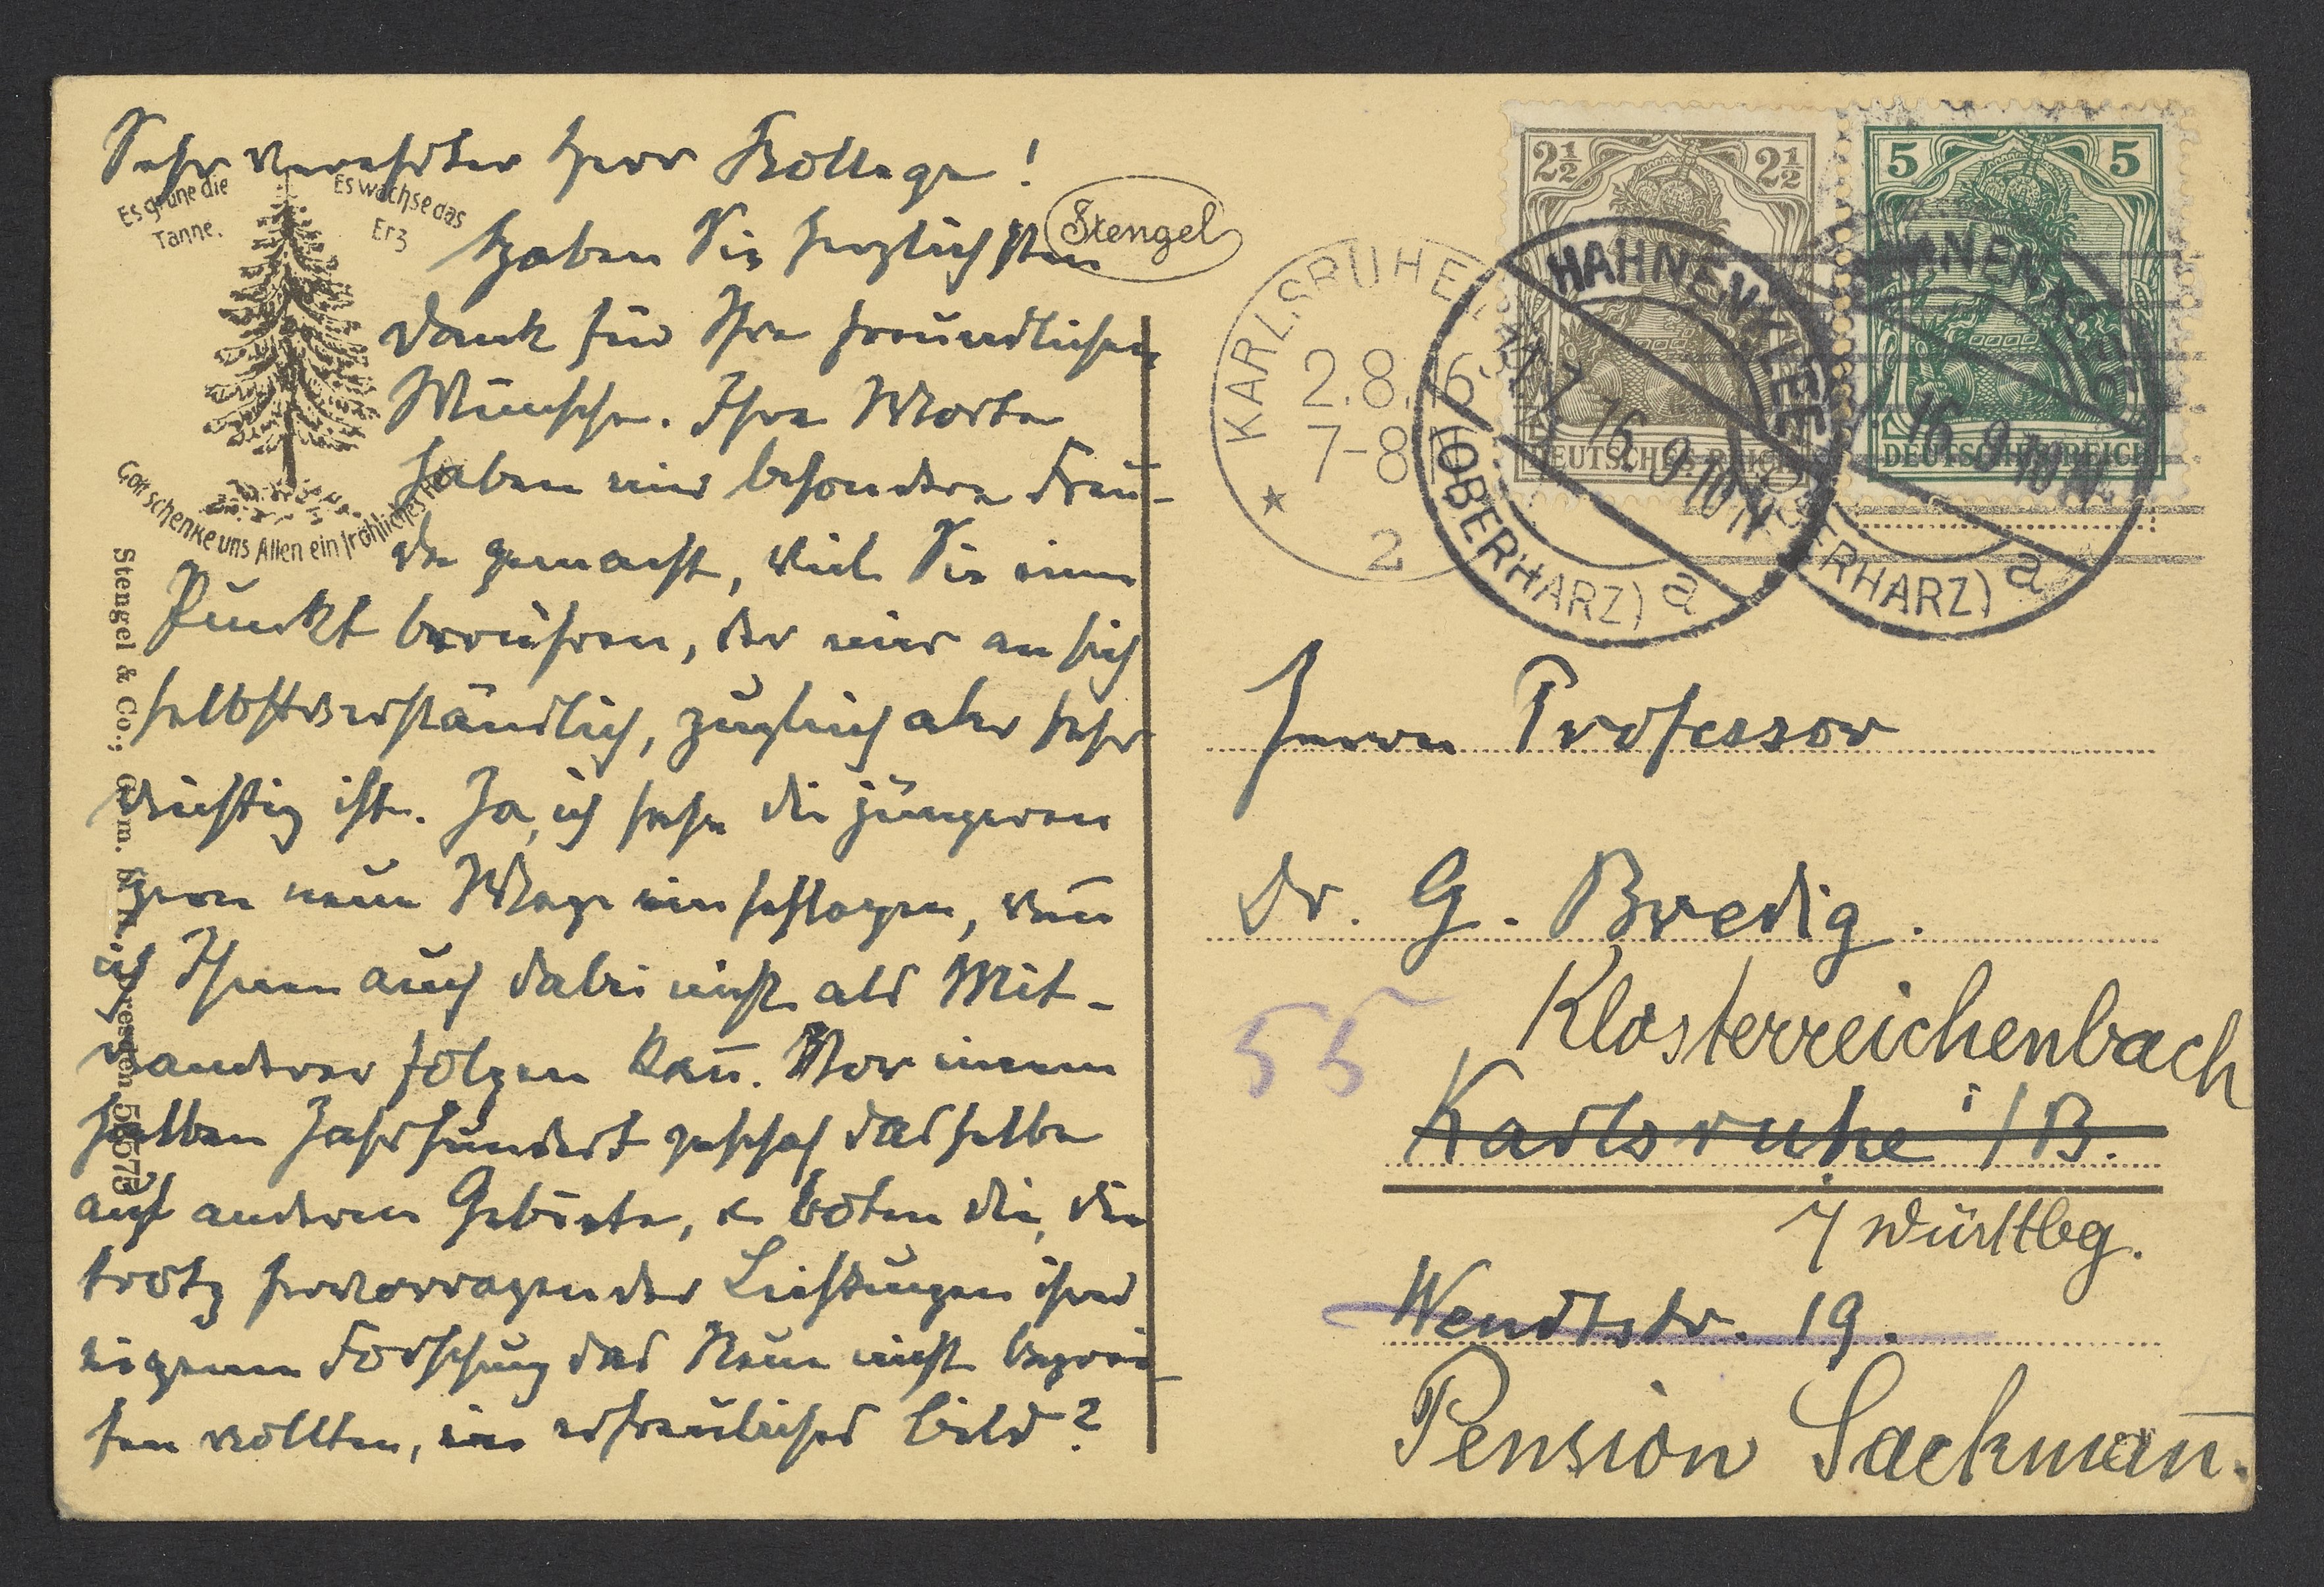 Sehr verehrter Herr Kollege!
Es grüne die
Tanne.
Es wachse das
Erz
Gott schenke uns Allen ein fröhliches
Stengel
Haben Sie herzlichsten
Dank für Ihre freundlichen
Wünsche. Ihre Worte
haben mir besondere Freu-
de gemacht, weil Sie einen
Punkt berühren, der mir an sich
selbstverständlich, zugleich aber sehr
wichtig ist. Ja, ich sehe die jüngeren
gern neue Wege einschlagen, wenn̄
ich Ihnen auch dabei nicht als Mit-
wanderer folgen kan̄. Vor einem
halben Jahrhundert geschah dasselbe
auf anderem Gebiete, u boten die, die
trotz hervorragender Leistungen ihrer
eigenen Forschung das Neue nicht begrei-
fen wollten, ein erfreuliches Bild?
Stengel & Co., G. m. b. H., Dresden
KARLSRUHE
2.8.16
7-8
2
2½ 2½
DEUTSCHES REICH
5 5
DEUTSCHES REICH
HAHNENKLEE
31.7.16. 9-10 N
(OBERHARZ) a
HAHNENKLEE
16. 9-10 N.
(OBERHARZ) a
Herrn Professor
Dr. G. Bredig.
55
Klosterreichenbach
Karlsruhe i/B.
i/ Württbg.
Wendtstr. 19.
Pension Sackman̄.